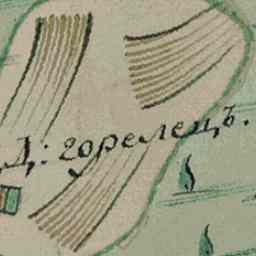 Д: горелецъ.